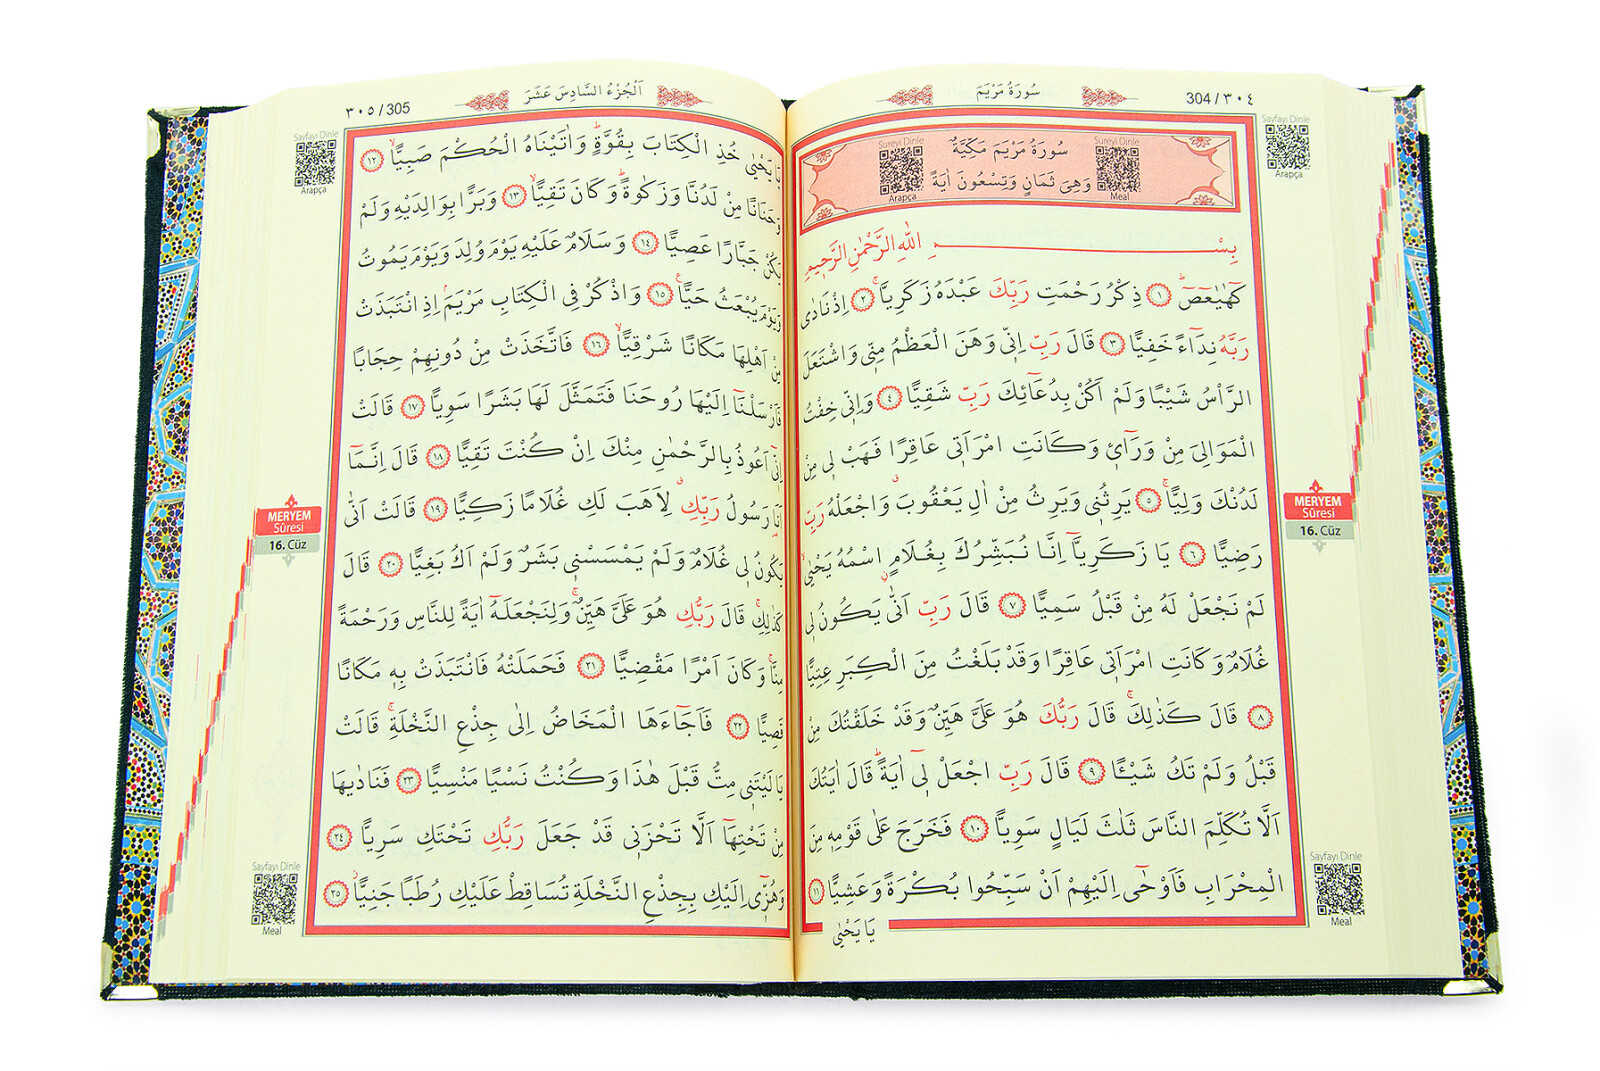 سُورَةُ مَرْيَمَ
304 / ٣٠٤
Sayfayı Dinle
Arapça
Sureyi Dinle
Sureyi Dinle
سُورَةُ مَرْيَمَ مَكِّيَّةٌ
وَهِيَ ثَمَانٍ وَتِسْعُونَ اٰيَةً
Meal
Arapça
بِسْــــمِ اللّٰهِ الرَّحْمٰنِ الرَّحٖيمِ
كٓهٰيٰعٓصٓ ۚ ﴿١﴾ ذِكْرُ رَحْمَتِ رَبِّكَ عَبْدَهُ زَكَرِيَّاۚ ﴿٢﴾ اِذْ نَادٰى
رَبَّهُ نِدَٓاءً خَفِيًّا ﴿٣﴾ قَالَ رَبِّ اِنّٖي وَهَنَ الْعَظْمُ مِنّٖي وَاشْتَعَلَ
الرَّأْسُ شَيْبًا وَلَمْ اَكُنْ بِدُعَٓائِكَ رَبِّ شَقِيًّا ﴿٤﴾ وَاِنّٖي خِفْتُ
الْمَوَالِيَ مِنْ وَرَٓائٖي وَكَانَتِ امْرَاَتٖي عَاقِرًا فَهَبْ لٖي مِنْ
لَدُنْكَ وَلِيًّاۙ ﴿٥﴾ يَرِثُنٖي وَيَرِثُ مِنْ اٰلِ يَعْقُوبَۗ وَاجْعَلْهُ رَبِّ
رَضِيًّا ﴿٦﴾ يَا زَكَرِيَّٓا اِنَّا نُبَشِّرُكَ بِغُلَامٍۨ اسْمُهُ يَحْيٰىۙ
لَمْ نَجْعَلْ لَهُ مِنْ قَبْلُ سَمِيًّا ﴿٧﴾ قَالَ رَبِّ اَنّٰى يَكُونُ لٖي
غُلَامٌ وَكَانَتِ امْرَاَتٖي عَاقِرًا وَقَدْ بَلَغْتُ مِنَ الْكِبَرِ عِتِيًّا
﴿٨﴾ قَالَ كَذٰلِكَۚ قَالَ رَبُّكَ هُوَ عَلَيَّ هَيِّنٌ وَقَدْ خَلَقْتُكَ مِنْ
قَبْلُ وَلَمْ تَكُ شَيْـًٔا ﴿٩﴾ قَالَ رَبِّ اجْعَلْ لٖٓي اٰيَةًۜ قَالَ اٰيَتُكَ
اَلَّا تُكَلِّمَ النَّاسَ ثَلٰثَ لَيَالٍ سَوِيًّا ﴿١٠﴾ فَخَرَجَ عَلٰى قَوْمِهٖ مِنَ
الْمِحْرَابِ فَاَوْحٰٓى اِلَيْهِمْ اَنْ سَبِّحُوا بُكْرَةً وَعَشِيًّا ﴿١١﴾
يَا يَحْيٰى
MERYEM
Sûresi
16. Cüz
Sayfayı Dinle
Meal
٣٠٥ / 305
اَلْجُزْءُ السَّادِسَ عَشَرَ
Sayfayı Dinle
Arapça
يَا يَحْيٰى خُذِ الْكِتَابَ بِقُوَّةٍۜ وَاٰتَيْنَاهُ الْحُكْمَ صَبِيًّاۙ ﴿١٢﴾
وَحَنَانًا مِنْ لَدُنَّا وَزَكٰوةًۜ وَكَانَ تَقِيًّاۙ ﴿١٣﴾ وَبَرًّا بِوَالِدَيْهِ وَلَمْ
يَكُنْ جَبَّارًا عَصِيًّا ﴿١٤﴾ وَسَلَامٌ عَلَيْهِ يَوْمَ وُلِدَ وَيَوْمَ يَمُوتُ
وَيَوْمَ يُبْعَثُ حَيًّا۟ ﴿١٥﴾ وَاذْكُرْ فِي الْكِتَابِ مَرْيَمَۢ اِذِ انْتَبَذَتْ
مِنْ اَهْلِهَا مَكَانًا شَرْقِيًّاۙ ﴿١٦﴾ فَاتَّخَذَتْ مِنْ دُونِهِمْ حِجَابًا
فَاَرْسَلْنَٓا اِلَيْهَا رُوحَنَا فَتَمَثَّلَ لَهَا بَشَرًا سَوِيًّا ﴿١٧﴾ قَالَتْ
اِنّٖٓي اَعُوذُ بِالرَّحْمٰنِ مِنْكَ اِنْ كُنْتَ تَقِيًّا ﴿١٨﴾ قَالَ اِنَّمَٓا
اَنَا رَسُولُ رَبِّكِۗ لِاَهَبَ لَكِ غُلَامًا زَكِيًّا ﴿١٩﴾ قَالَتْ اَنّٰى
يَكُونُ لٖي غُلَامٌ وَلَمْ يَمْسَسْنٖي بَشَرٌ وَلَمْ اَكُ بَغِيًّا ﴿٢٠﴾ قَالَ
كَذٰلِكِۚ قَالَ رَبُّكِ هُوَ عَلَيَّ هَيِّنٌۚ وَلِنَجْعَلَهُٓ اٰيَةً لِلنَّاسِ وَرَحْمَةً
مِنَّاۚ وَكَانَ اَمْرًا مَقْضِيًّا ﴿٢١﴾ فَحَمَلَتْهُ فَانْتَبَذَتْ بِهٖ مَكَانًا
قَصِيًّا ﴿٢٢﴾ فَاَجَٓاءَهَا الْمَخَاضُ اِلٰى جِذْعِ النَّخْلَةِۚ قَالَتْ
يَا لَيْتَنٖي مِتُّ قَبْلَ هٰذَا وَكُنْتُ نَسْيًا مَنْسِيًّا ﴿٢٣﴾ فَنَادٰيهَا
مِنْ تَحْتِهَٓا اَلَّا تَحْزَنٖي قَدْ جَعَلَ رَبُّكِ تَحْتَكِ سَرِيًّا ﴿٢٤﴾
وَهُزّٖٓي اِلَيْكِ بِجِذْعِ النَّخْلَةِ تُسَاقِطْ عَلَيْكِ رُطَبًا جَنِيًّاۘ ﴿٢٥﴾
MERYEM
Sûresi
16. Cüz
Sayfayı Dinle
Meal